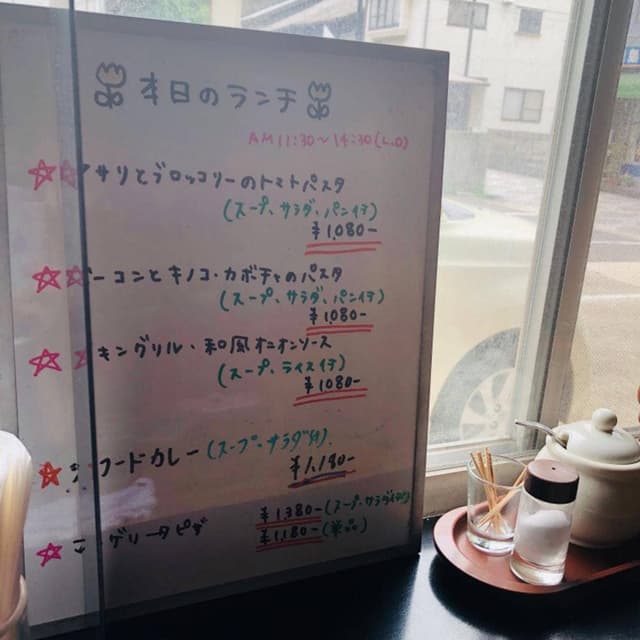 本日のランチ
AM 11:30~14:30(L.O)
アサリとブロッコリーのトマトパスタ
(スープ、サラダ、パン付)
¥1,080-
ベーコンとキノコ・カボチャのパスタ
(スープ、サラダ、パン付)
¥1080-
キングリル・和風オニオンソース
(スープ、ライス付)
¥1080-
フードカレー(スープ・サラダ付)
¥1,180-
¥1380-(スープ・サラダ付)
グリータピザ ¥1,180-(単品)